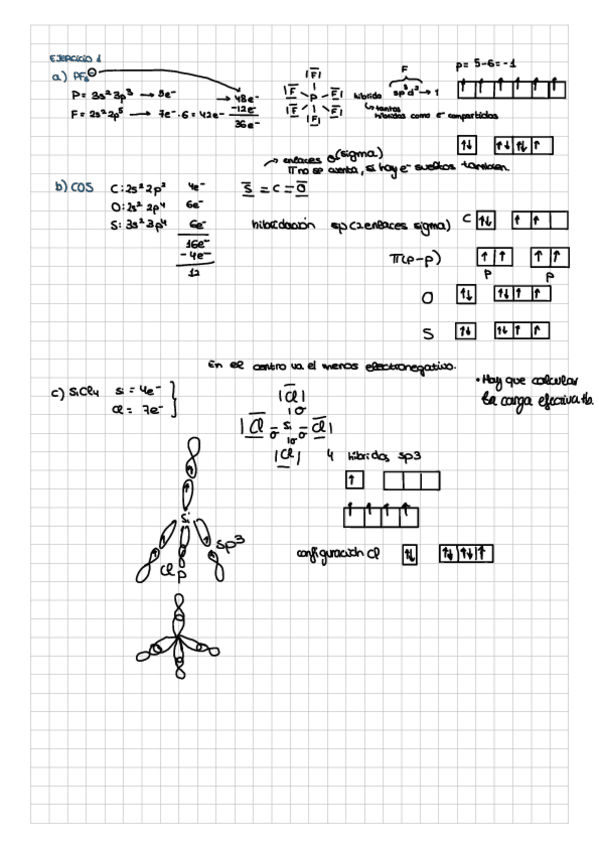 EJERCICIO 1
a) PF6⊖
P= 3s² 3p³ → 5e⁻ → 48e⁻
F= 2s² 2p⁵ → 7e⁻·6 = 42e⁻ -12e⁻
36e⁻
|F̅|
|F̅ F̅|
P
|F̅ F̅|
|F|
híbrido sp³d² → 1
F
↳ tantos
híbridos como e⁻ compartidos
p= 5-6=-1
→ enlaces σ(sigma)
π no se cuenta, si hay e⁻ sueltos tambien.
b) COS C: 2s² 2p² 4e⁻
O: 2s² 2p⁴ 6e⁻
S: 3s² 3p⁴ 6e⁻
16e⁻
-4e⁻
12
S̅ = C = O̅
hibridación sp (2 enlaces sigma) C
π(p-p)
p p
O
S
En el centro va el menos electronegativo.
c) SiCl4 Si = 4e⁻
Cl = 7e⁻
|C̅l|
|σ
|C̅l σ Si σ C̅l|
|σ
|Cl|
4 híbridos sp3
• Hay que calcular
la carga efectiva
Si
sp3
Cl p
configuración Cl